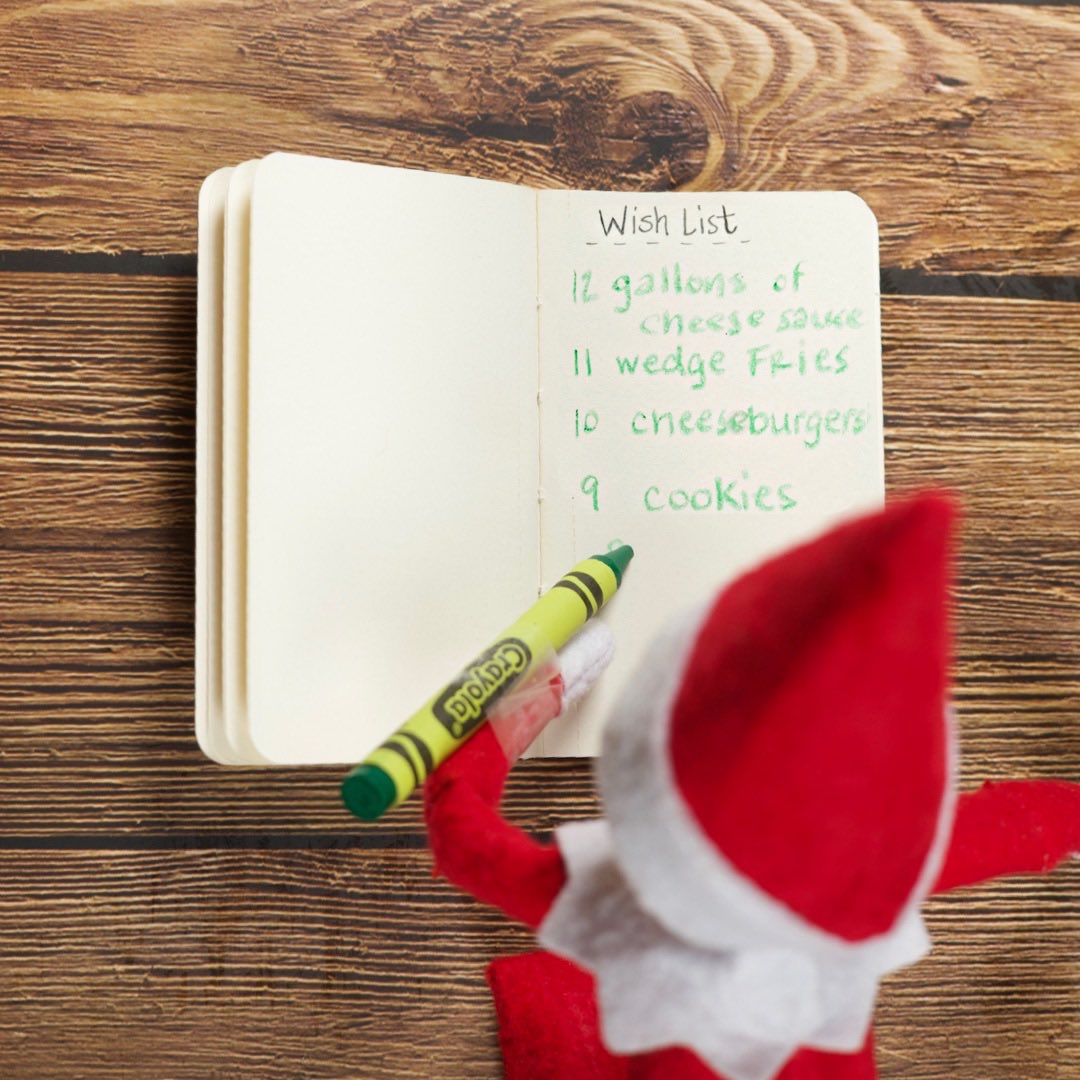 Wish List
12 gallons of
cheese sauce
11 wedge Fries
10 cheeseburgers
9 cookies
8
Crayola